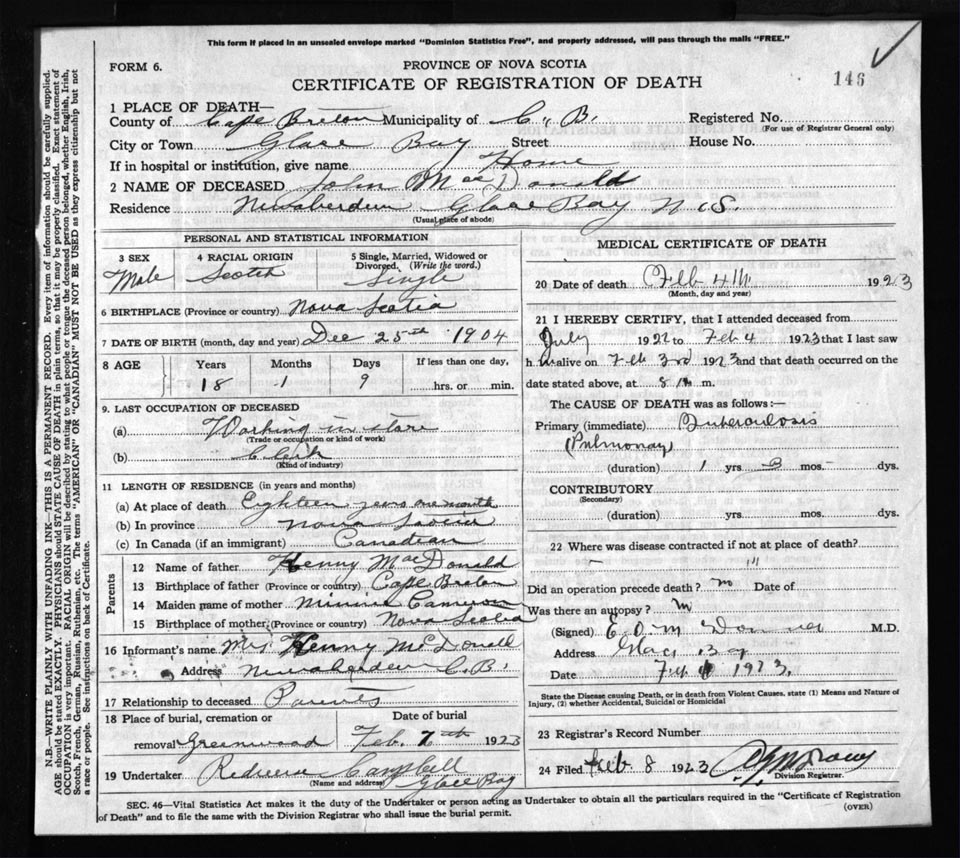 This form if placed in an unsealed envelope marked "Dominion Statistics Free", and properly addressed, will pass through the mails "FREE."
FORM 6.
PROVINCE OF NOVA SCOTIA
146
CERTIFICATE OF REGISTRATION OF DEATH
1 PLACE OF DEATH—
County of Cape Breton Municipality of C. B. Registered No.
(For use of Registrar General only)
City or Town Glace Bay Street House No.
If in hospital or institution, give name Home
2 NAME OF DECEASED John MacDonald
Residence Newaberdeen Glace Bay N.S.
(Usual place of abode)
PERSONAL AND STATISTICAL INFORMATION
3 SEX 4 RACIAL ORIGIN 5 Single, Married, Widowed or Divorced. (Write the word.)
Male Scotch Single
6 BIRTHPLACE (Province or country) Nova Scotia
7 DATE OF BIRTH (month, day and year) Dec 25th 1904
8 AGE Years Months Days If less than one day,
18 1 9 hrs. or min.
9. LAST OCCUPATION OF DECEASED
(a) Working in store
(Trade or occupation or kind of work)
(b) Clerk
(Kind of industry)
11 LENGTH OF RESIDENCE (in years and months)
(a) At place of death Eighteen years one month
(b) In province Nova Scotia
(c) In Canada (if an immigrant) Canadian
Parents
12 Name of father Henny MacDonald
13 Birthplace of father (Province or country) Cape Breton
14 Maiden name of mother Minnie Cameron
15 Birthplace of mother (Province or country) Nova Scotia
16 Informant's name Mrs Henny McDonell
Address Newaberdeen C.B.
17 Relationship to deceased Parents
18 Place of burial, cremation or removal Greenwood
Date of burial
Feb. 7th 1923
19 Undertaker Campbell
(Name and address) Glace Bay
MEDICAL CERTIFICATE OF DEATH
20 Date of death Feb 4th 1923
(Month, day and year)
21 I HEREBY CERTIFY, that I attended deceased from
July 1922 to Feb 4 1923 that I last saw
h im alive on Feb 3rd 1923 and that death occurred on the
date stated above, at 8 m.
The CAUSE OF DEATH was as follows:—
Primary (immediate) Tuberculosis
(Pulmonary)
(duration) 1 yrs 3 mos. - dys.
CONTRIBUTORY
(Secondary)
(duration) yrs. mos. dys.
22 Where was disease contracted if not at place of death?
Did an operation precede death? no Date of
Was there an autopsy? no
(Signed) M.D.
Address Glace Bay
Date 1923.
State the Disease causing Death, or in death from Violent Causes, state (1) Means and Nature of
Injury, (2) whether Accidental, Suicidal or Homicidal
23 Registrar's Record Number
24 Filed Feb 8 1923
Division Registrar.
SEC. 46—Vital Statistics Act makes it the duty of the Undertaker or person acting as Undertaker to obtain all the particulars required in the "Certificate of Registration
of Death" and to file the same with the Division Registrar who shall issue the burial permit.
(OVER)
N.B.—WRITE PLAINLY WITH UNFADING INK—THIS IS A PERMANENT RECORD. Every item of information should be carefully supplied.
AGE should be stated EXACTLY. PHYSICIANS should STATE CAUSE OF DEATH in plain terms, so that it may be properly classified. Exact statement of
OCCUPATION is very important. RACIAL ORIGIN will be described by stating to what people or tongue the deceased person belonged, whether English, Irish,
Scotch, French, German, Russian, Ruthenian, etc. The terms "AMERICAN" OR "CANADIAN" MUST NOT BE USED as they express citizenship but not
a race or people. See instructions on back of Certificate.